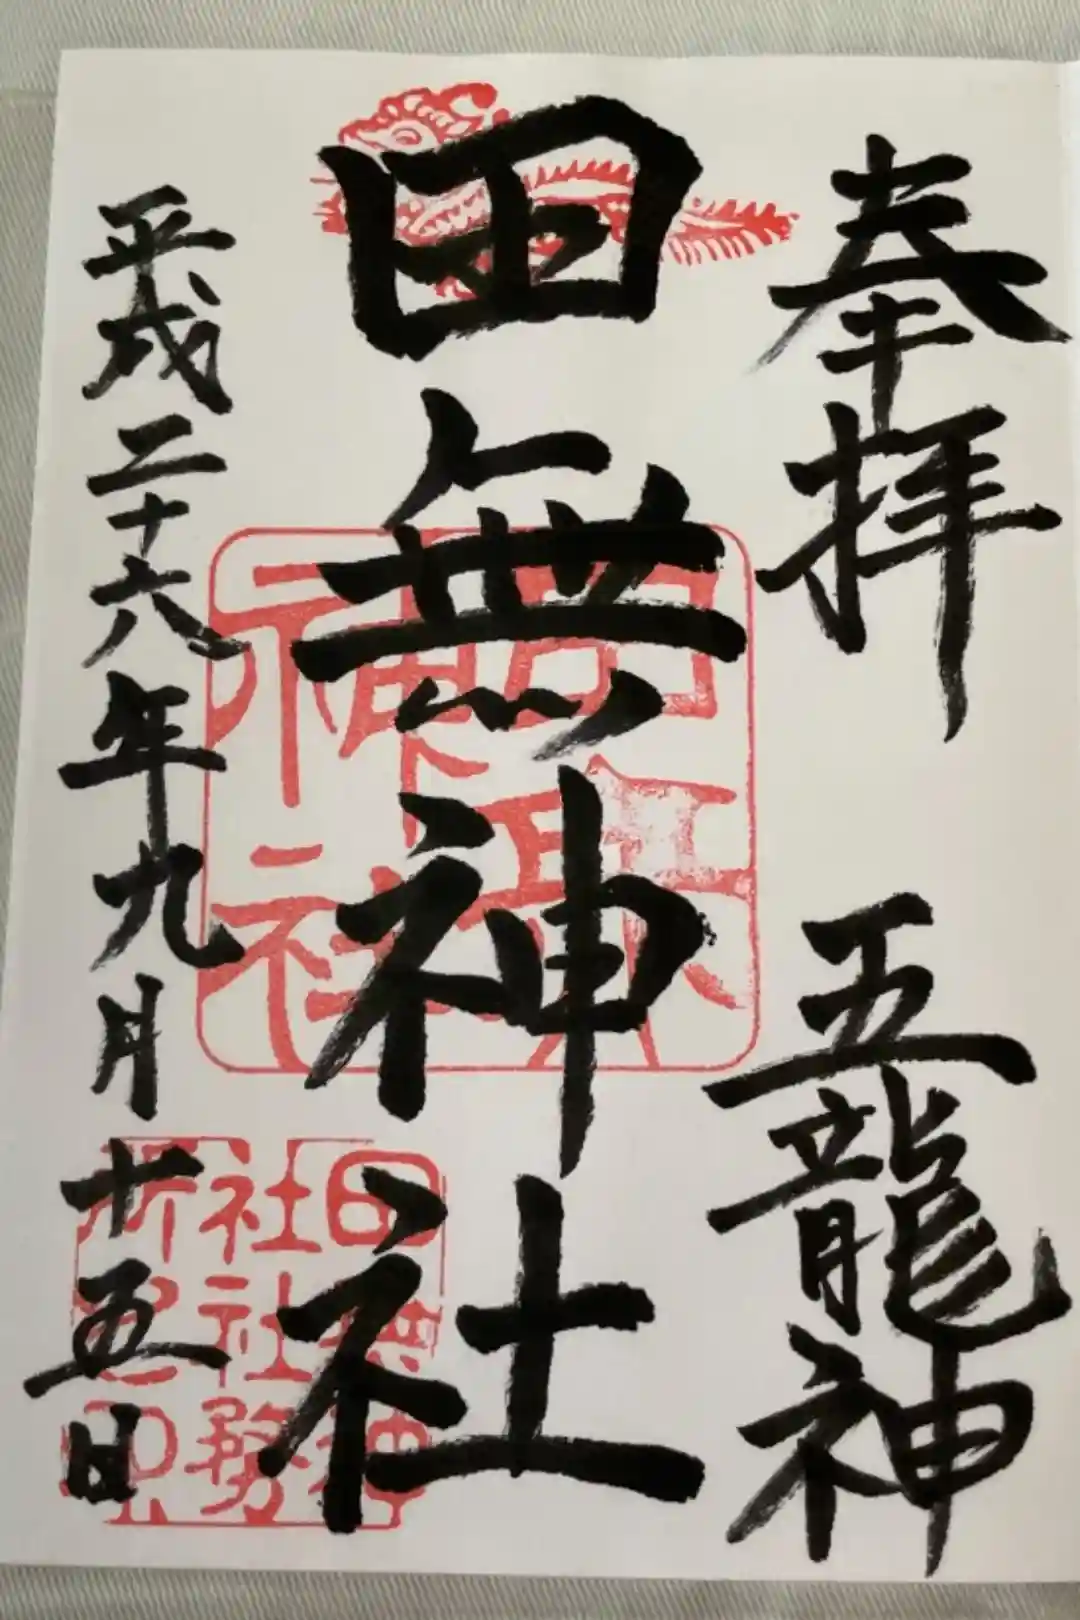 奉拝 五龍神
田無神社
平成二十六年九月十五日
田無神社
田無神
社社務
所之印